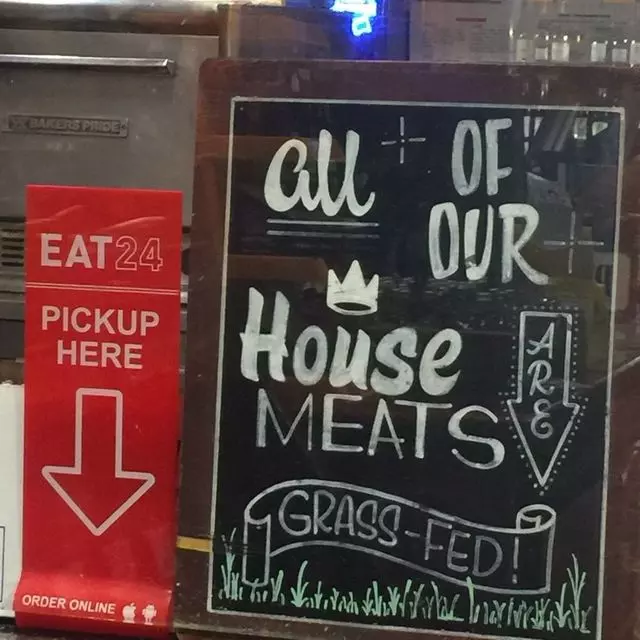 BAKERS PRIDE
EAT24
PICKUP
HERE
ORDER ONLINE
all
OF
OUR
House
MEATS
ARE
GRASS-FED!